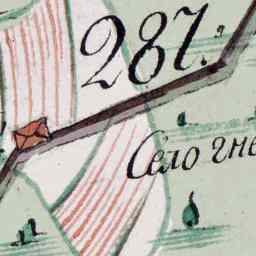 287.
Село гне